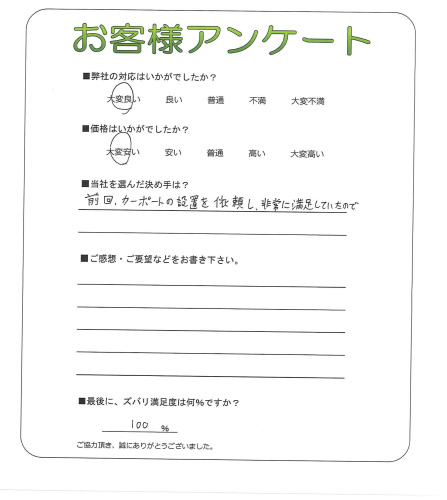 お客様アンケート
■弊社の対応はいかがでしたか？
大変良い 良い 普通 不満 大変不満
■価格はいかがでしたか？
大変安い 安い 普通 高い 大変高い
■当社を選んだ決め手は？
前回、カーポートの設置を依頼し、非常に満足していたので
■ご感想・ご要望などをお書き下さい。
■最後に、ズバリ満足度は何％ですか？
100 ％
ご協力頂き、誠にありがとうございました。